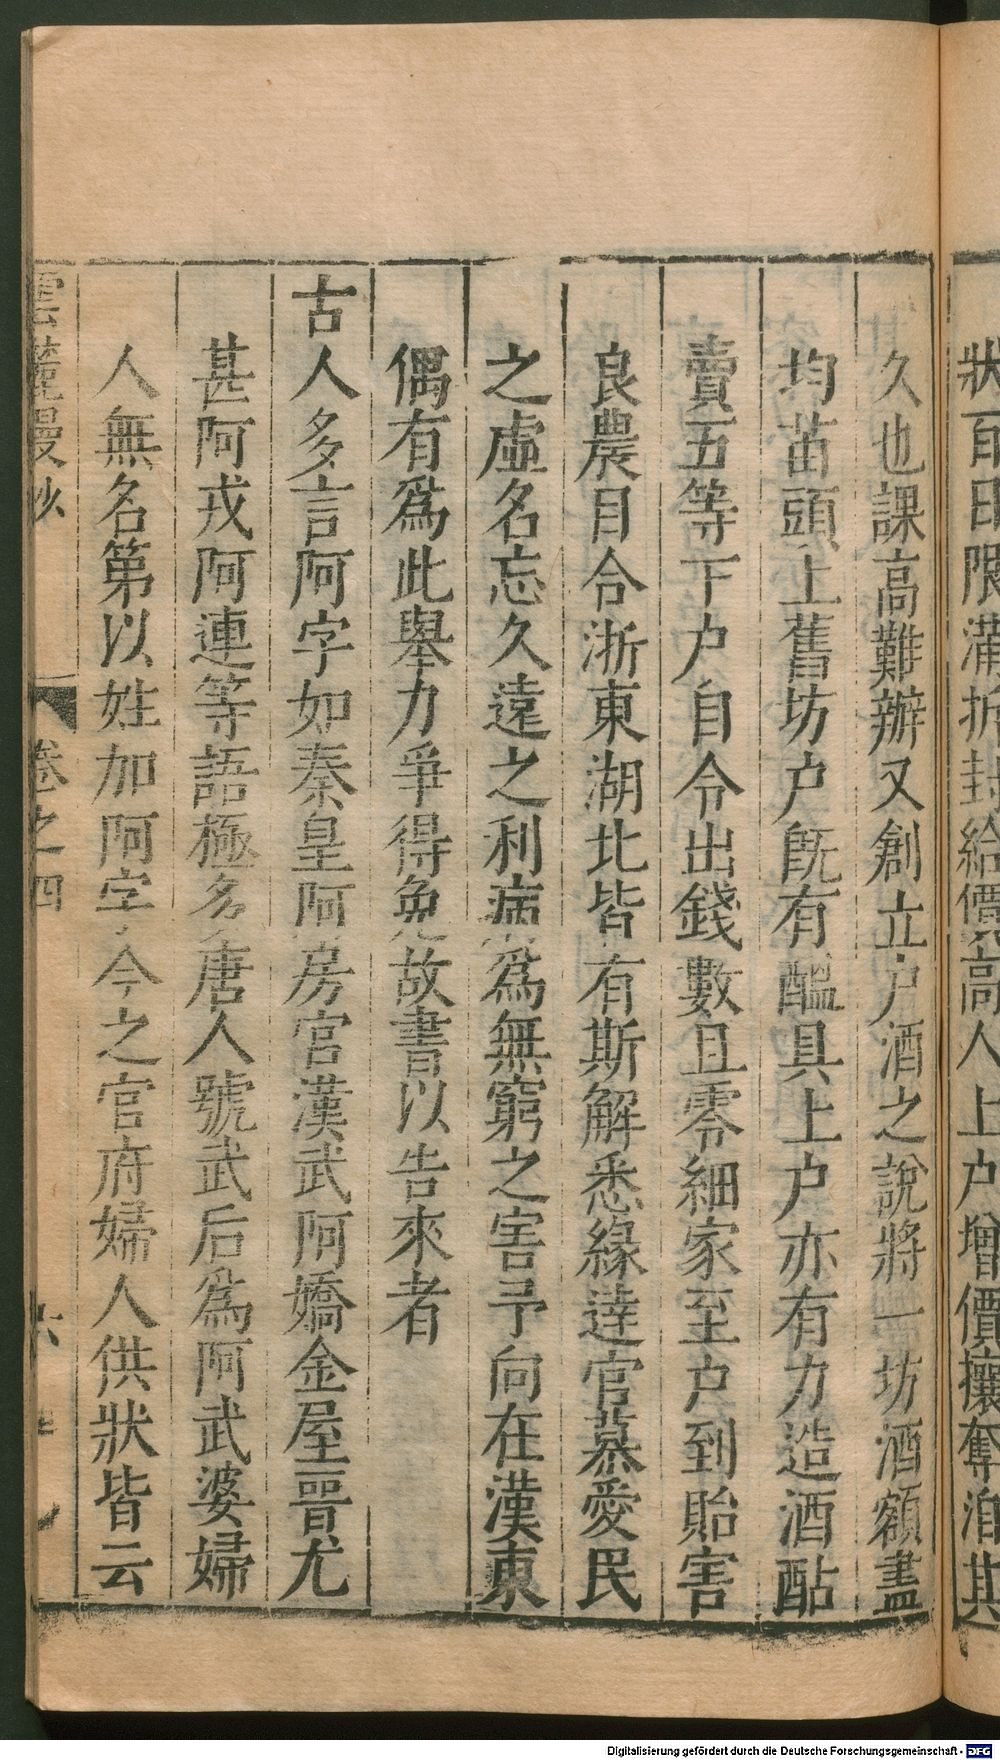 狀百日限滿折封給價高人上户增價攘奪洎其
久也課高難辦又創立户酒之說將一坊酒額盡
均苗頭上舊坊户旣有醞具上户亦有力造酒酤
賣五等下户自令出錢數且零細家至户到貽害
良農目合浙東湖北皆有斯解悉緣達官慕愛民
之虛名忘久遠之利病爲無窮之害予向在漢東
偶有爲此舉力爭得免故書以告來者
古人多言阿字如秦皇阿房宮漢武阿嬌金屋晉尤
甚阿戎阿連等語極多唐人號武后爲阿武婆婦
人無名第以姓加阿字今之官府婦人供狀皆云
雲麓漫抄 卷之四 六
Digitalisierung gefördert durch die Deutsche Forschungsgemeinschaft - DFG